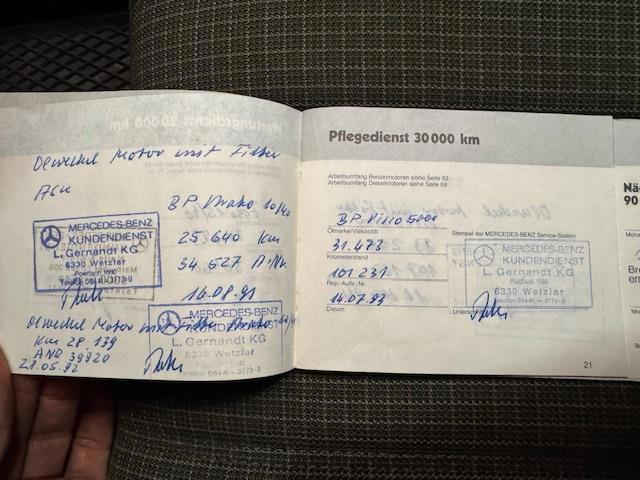 Ölwechsel Motor mit Filter
ASU
BP 10/40
25 640 km
34 527 A.Nr.
16.08.91
MERCEDES-BENZ
KUNDENDIENST
L. Gernandt KG
6330 Wetzlar
Postfach 1680
Telefon 06441-3773-0
Ölwechsel Motor mit Filter
km 28 139
AND 39920
21.05.92
MERCEDES-BENZ
KUNDENDIENST
L. Gernandt KG
6330 Wetzlar
Telefon 06441-3773-0
Pflegedienst 30 000 km
Arbeitsumfang Benzinmotoren siehe Seite 63
Arbeitsumfang Dieselmotoren siehe Seite 69
BP Visco 5000
Ölmarke/Viskosität
31.473
Kilometerstand
101 231
Rep.-Auftr.-Nr.
14.07.93
Datum
Stempel der MERCEDES-BENZ Service-Station
MERCEDES-BENZ
KUNDENDIENST
L. Gernandt KG
Postfach 1680
6330 Wetzlar
Telefon 06441-3773-0
Unterschrift
21
90